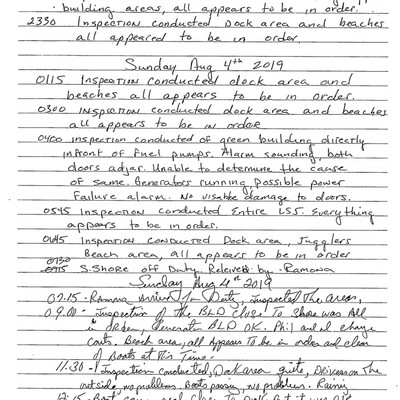 building areas, all appears to be in order.
2330 Inspection conducted Dock area and beaches
all appeared to be in order.
Sunday Aug 4th 2019
0115 Inspection conducted dock area and
beaches all appears to be in order.
0300 Inspection conducted dock area and beaches
all appears to be in order
0400 inspection conducted of green building directly
infront of fuel pumps. Alarm sounding, both
doors adjar. Unable to determine the cause
of same. Generators running, possible power
failure alarm. No visable damage to doors.
0545 Inspection conducted Entire LSJ. Everything
appears to be in order.
0645 Inspection conducted Dock area, Jugglers
Beach area, all appears to be in order
0730
S. Shore off Duty. Releved by - Ramona
Sunday Aug 4st 2019
07.15 - Ramona arrived for Duty, inspected The area,
09.00 - Inspection of the BLD close To Shore was All
in order, Generator BLD OK. Phil and
Beach area, all appears To be in order and clear
of Boats at This Time.
11:30 - Inspection conducted, Dock area quite, on The
outside, no problems. Boats passing, no problems.